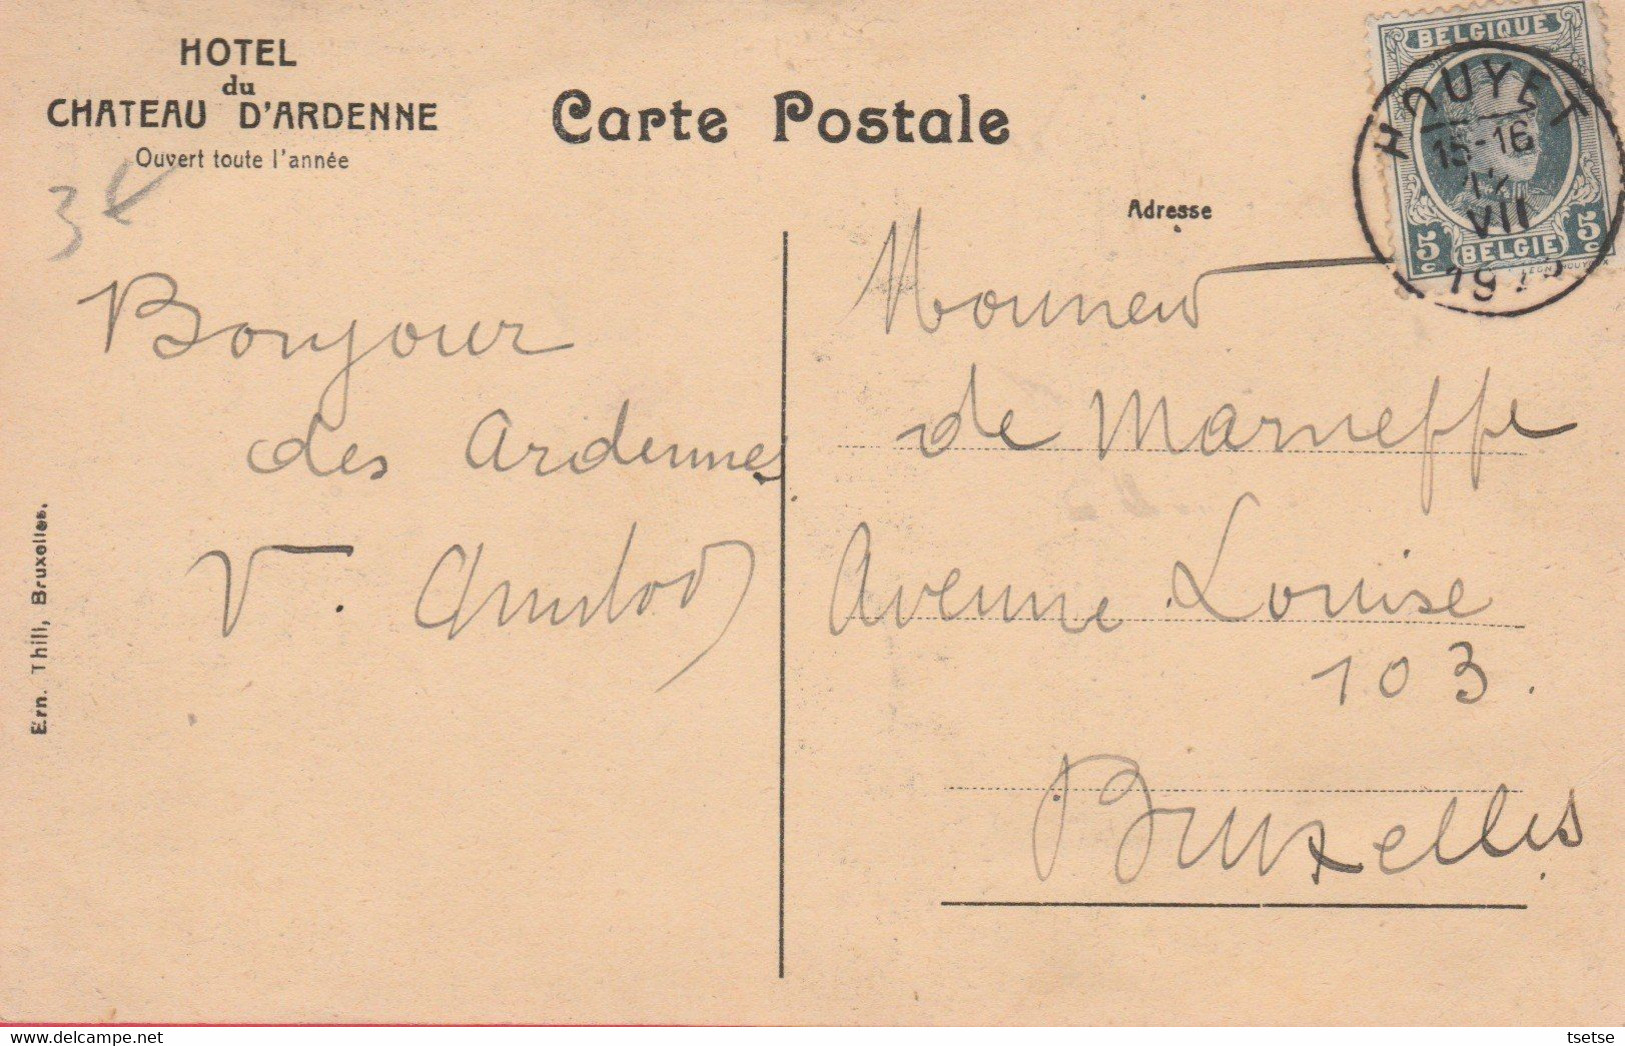 HOTEL
du
CHATEAU D'ARDENNE
Ouvert toute l'année
Carte Postale
Adresse
BELGIQUE
HOUYET
15-16
VII
5c BELGIE 5c
Bonjour
des Ardennes
V.
Monsieur
de Marneffe
Avenue Louise
103.
Bruxelles
Ern. Thill, Bruxelles.
delcampe.net
tsetse